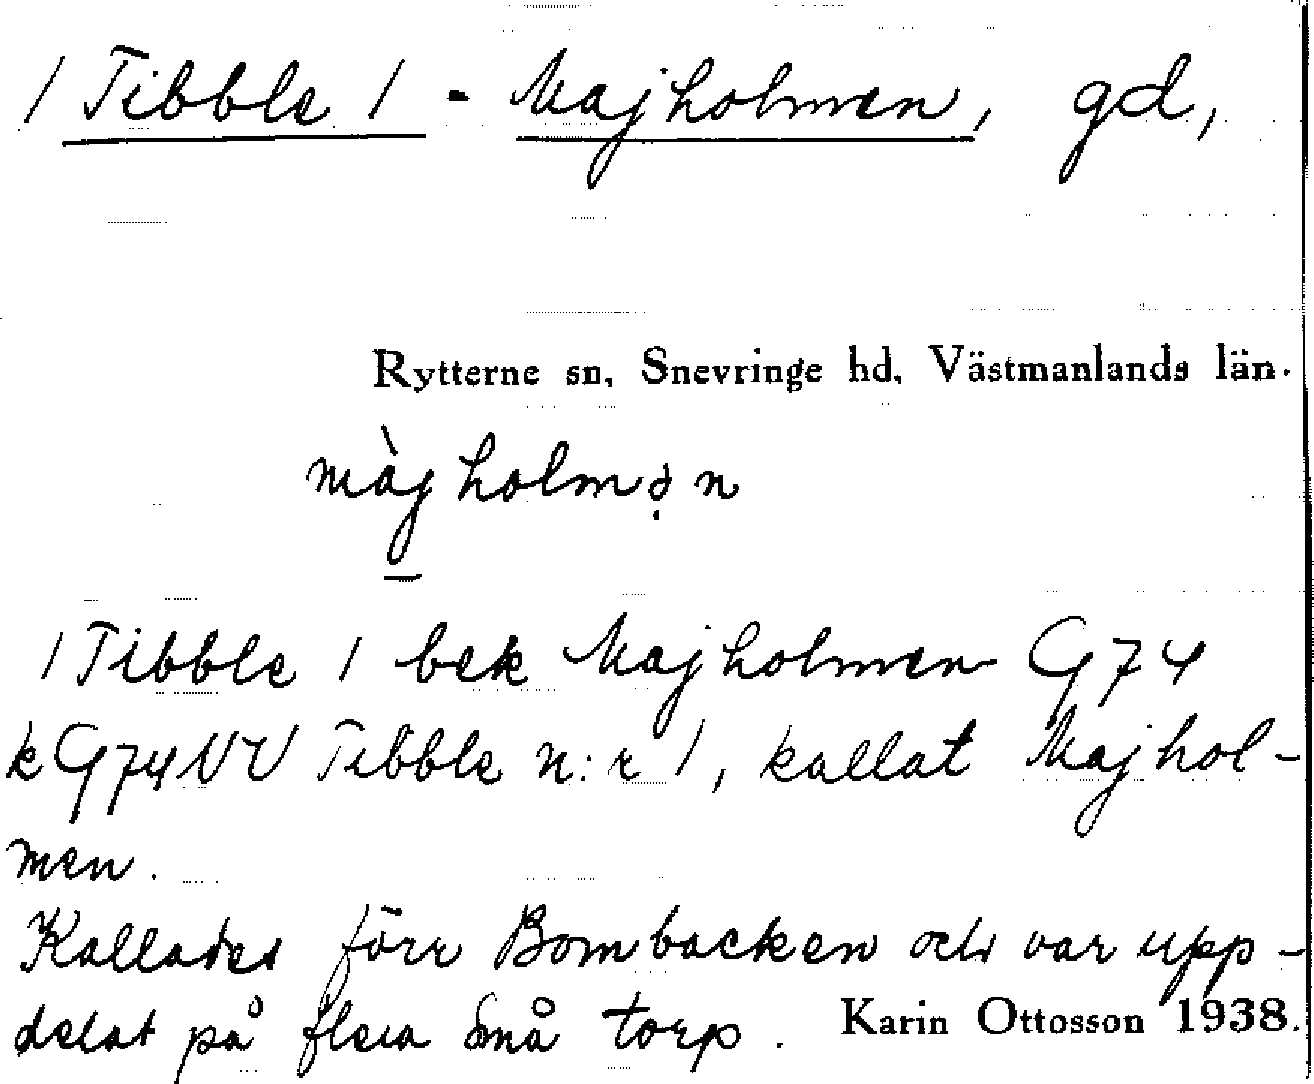 / Tibble 1 - Majholmen, gd,
Rytterne sn, Snevringe hd, Västmanlands län.
màjholmə̣n
/ Tibble 1 bek Majholmen G74
k G74NV Tibble n:r 1, kallat Majhol-
men.
Kallades förr Bombacken och var upp-
delat på flera små torp. Karin Ottosson 1938.